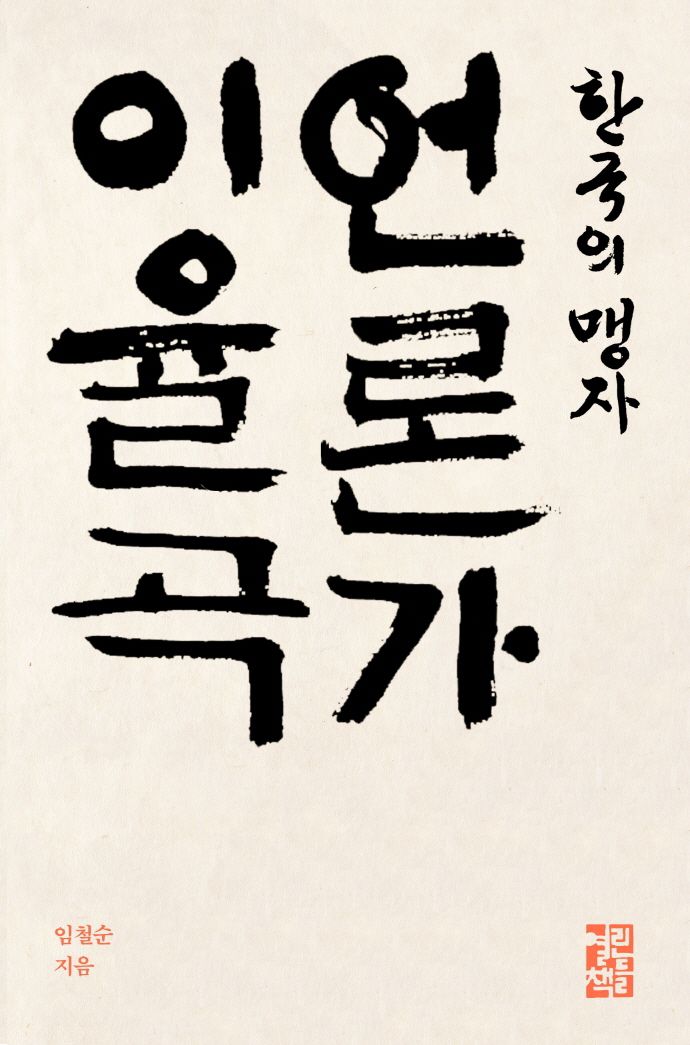 한국의 맹자
언론가
이율곡
임철순
지음
열린책들